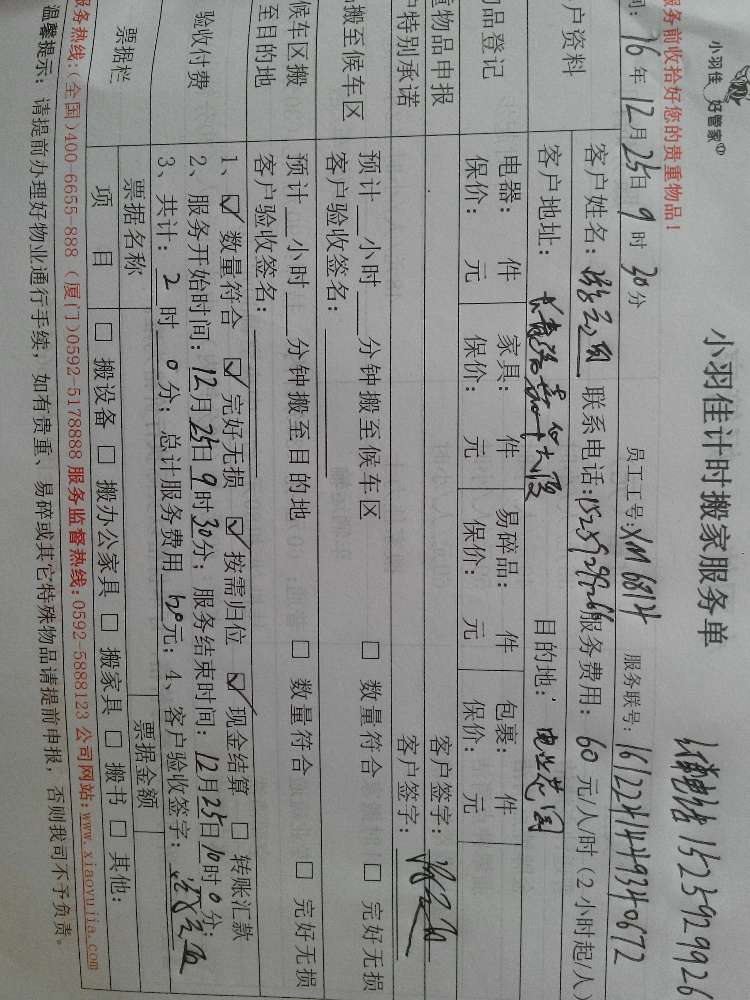 小羽佳 好管家
小羽佳计时搬家服务单
15259929926
服务前收拾好您的贵重物品！
间：16年12月25日9时30分
员工工号：XM6814
服务联号：
户资料
客户姓名：
联系电话：
服务费用：60元/人/时（2小时起/人）
客户地址：
目的地：
品登记
电器： 件 家具： 件 易碎品： 件 包裹： 件
保价： 元 保价： 元 保价： 元 保价： 元
重物品申报
客户签字：
户特别承诺
客户签字：
搬至候车区
预计 小时 分钟搬至候车区 □ 数量符合 □ 完好无损
客户验收签名：
候车区搬至目的地
预计 小时 分钟搬至目的地 □ 数量符合 □ 完好无损
客户验收签名：
验收付费
1、☑ 数量符合 ☑ 完好无损 ☑ 按需归位 ☑ 现金结算 □ 转账汇款
2、服务开始时间：12月25日9时30分；服务结束时间：12月25日10时0分；
3、共计：2时0分；总计服务费用 元；4、客户验收签字：
票据栏
票据名称 票据金额
项目 □ 搬设备 □ 搬办公家具 □ 搬家具 □ 搬书 □ 其他：
服务热线：(全国)400-6655-888 (厦门)0592-5178888 服务监督热线：0592-5888123 公司网站：www.xiaoyujia.com
温馨提示：请提前办理好物业通行手续，如有贵重、易碎或其它特殊物品请提前申报，否则我司不予负责。